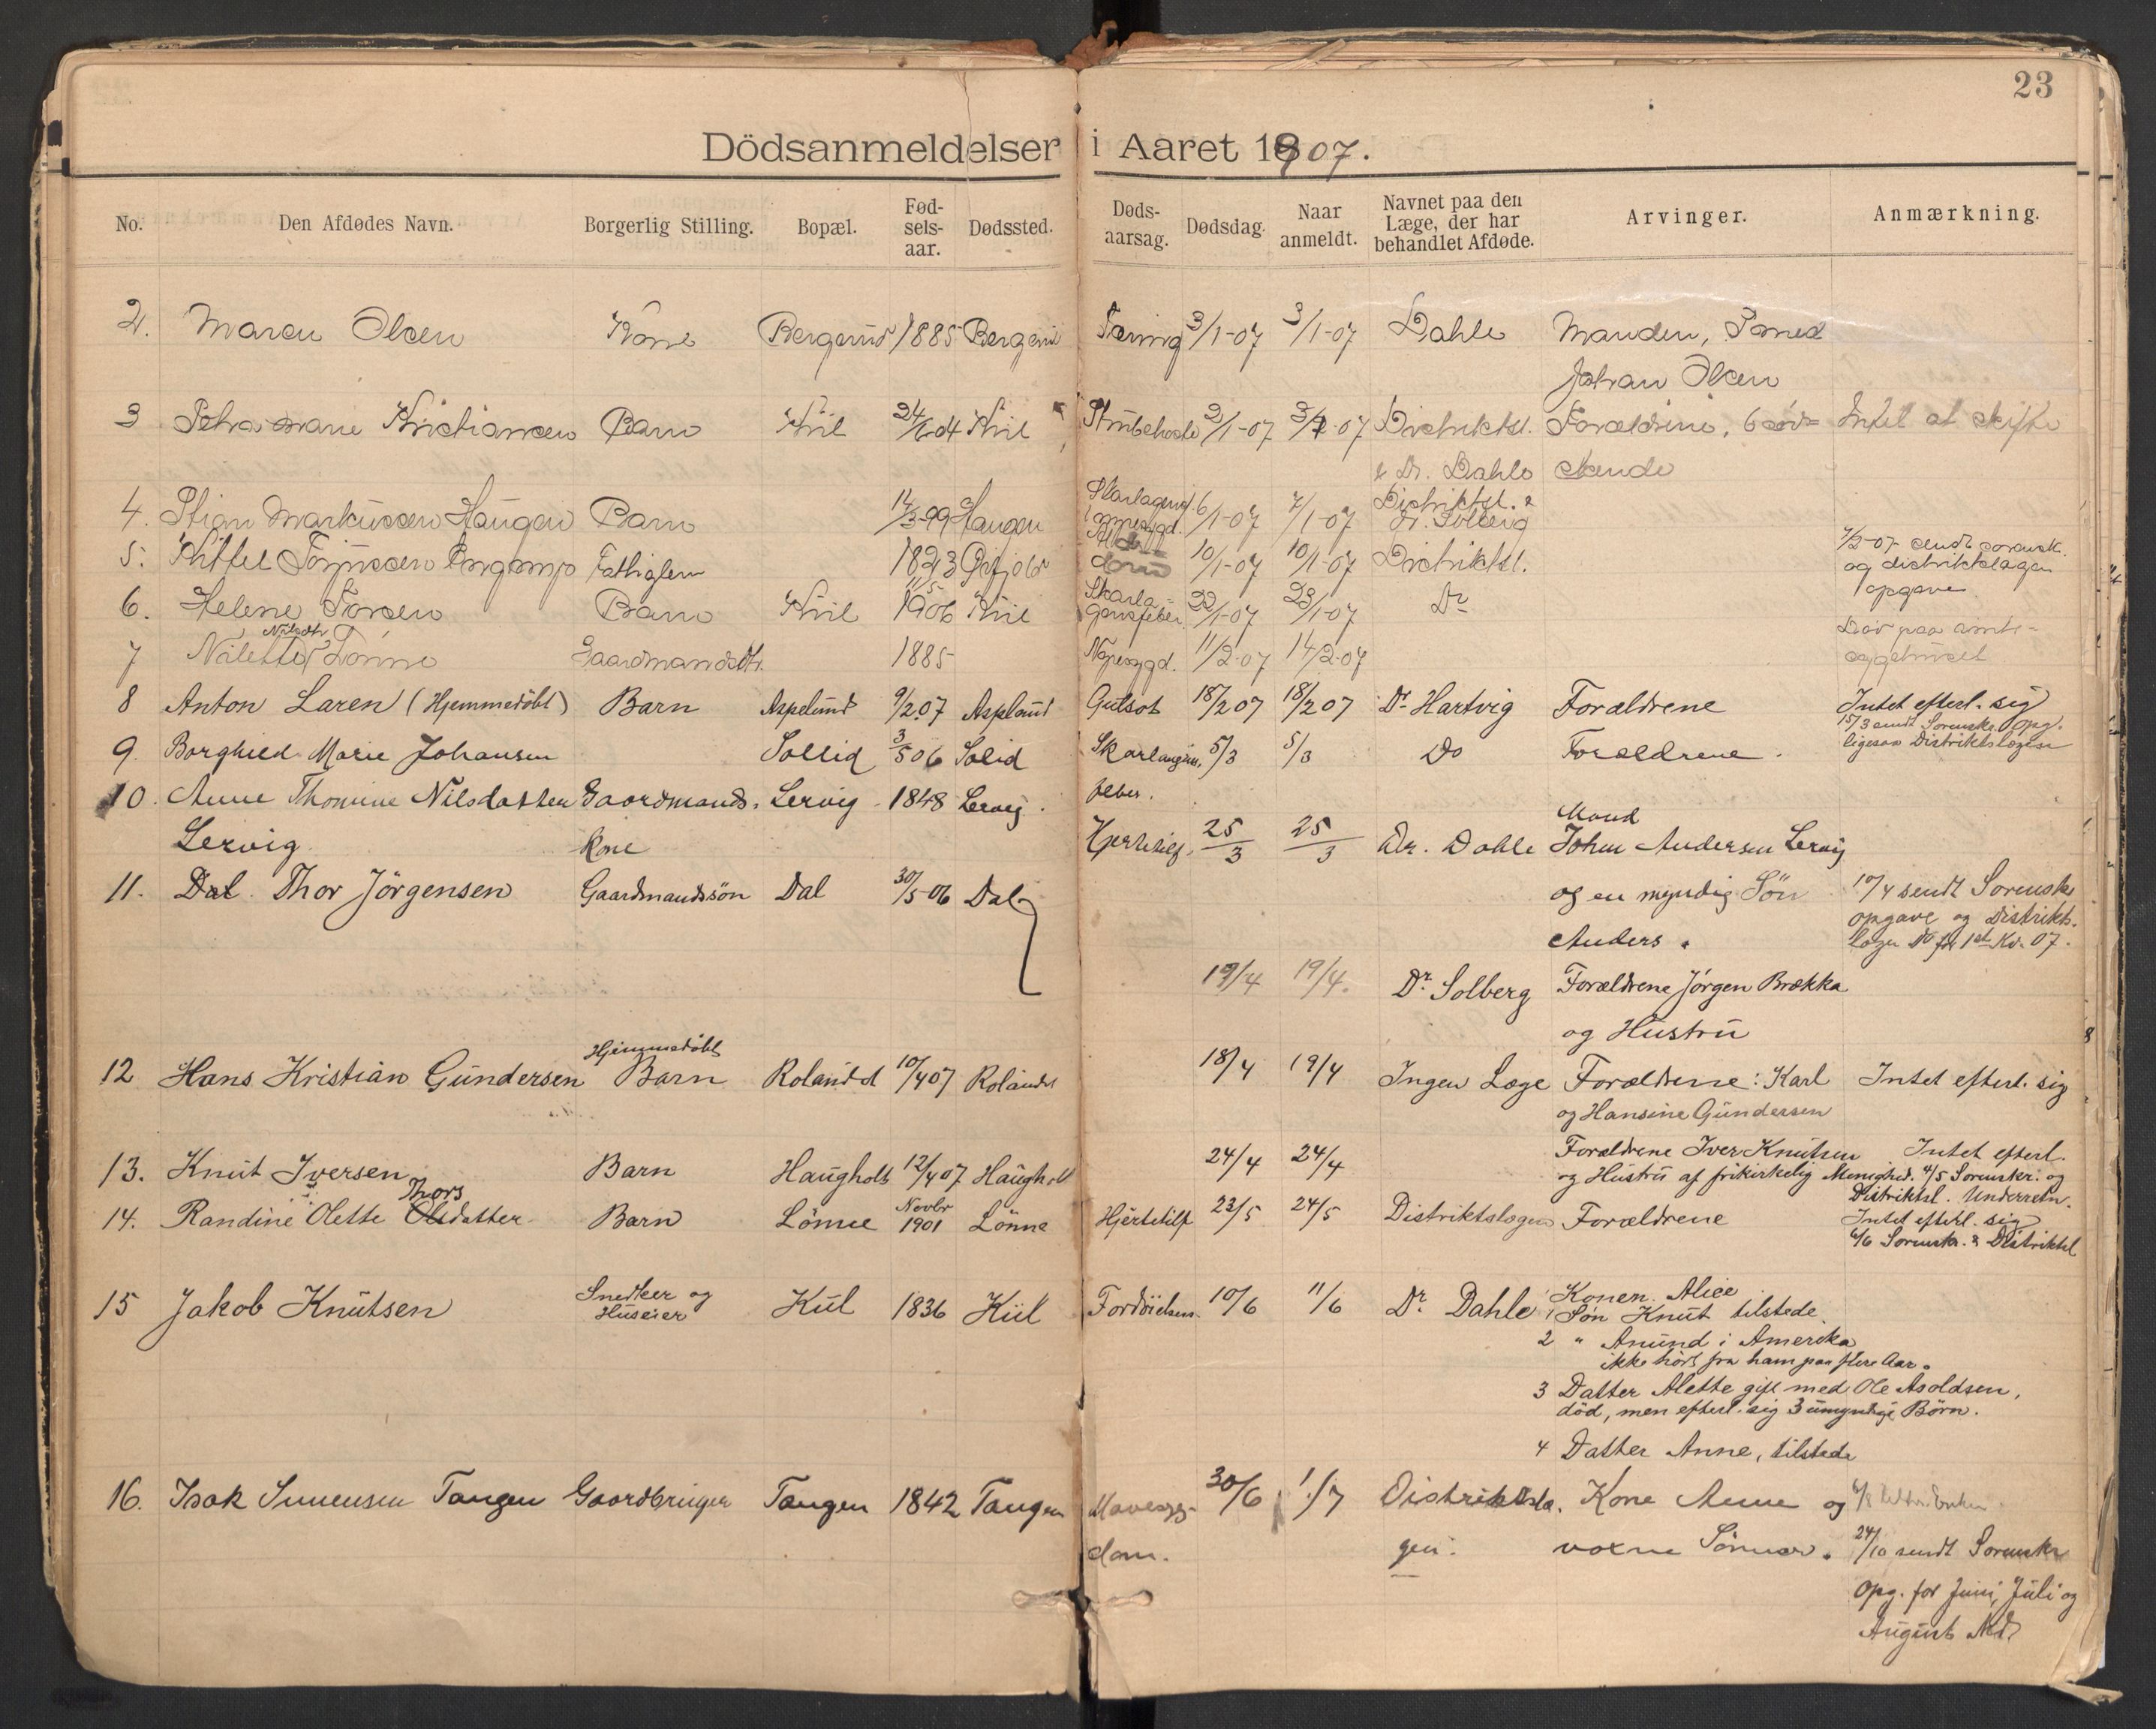 23
Dödsanmeldelser i Aaret 1907.
No. Den Afdødes Navn. Borgerlig Stilling. Bopæl. Fød-sels-aar. Dødssted. Døds-aarsag. Dødsdag. Naar anmeldt. Navnet paa den Læge, der har behandlet Afdøde. Arvinger. Anmærkning.
2. Maren Olsen Kone Bergerud 1885 Bergerud Tæring 3/1-07 3/1-07 Dahle Manden, Smed
Johan Olsen
3 Petra Marie Kristiansen Barn Kiil 24/6-04 Kiil Strubehoste 2/1-07 3/1-07 Distriktsl. Forældrene, 6 søds- Intet at skifte
& Dr. Dahle skende
4. Stian Markussen Haugen Barn 14/3-99 Haugen 6/1-07 7/1-07 Distriktsl. &
Dr. Solberg
5. Kittel Fattiglem 1823 10/1-07 10/1-07 Distriktsl. 7/2-07 sendt sorensk.
og distriktslægen
opgave
6. Helene Barn Kiil 11/5 1906 Kiil Skarla-
gensfeber. 22/1-07 23/1-07 Do
7 Nilsdtr. Lønne Gaardmandsdtr. 1885 Nyresygd. 11/2-07 14/2-07 Død paa amts-
sygehuset
8 Anton Laren (Hjemmedöbt) Barn Aspelund 9/2.07 Aspelund Gulsot 18/2 07 18/2 07 Dr. Hartvig Forældrene Intet efterl. sig
15/3 sendt Sorenskr. Opg.
ligesaa Distriktslægen
9. Borghild Marie Johansen Sollid 3/5 06 Solid Skarlagens. 5/3 5/3 Do Forældrene.
feber.
10. Anne Thomine Nilsdatter Gaardmands. Lervig 1848 Lervig.
Lervig. Kone Hjertetilf. 25/3 25/3 Dr. Dahle Mand
Johan Andersen Lervig
og en myndig Sön
Anders.
11. Dal. Thor Jörgensen Gaardmandssön Dal 30/5-06 Dal 10/4 sendt Sorenskr
opgave og Distrikts.
lægen Do for 1st Kv. 07.
19/4 19/4. Dr. Solberg Forældrene Jörgen Brækka
og Hustru
12 Hans Kristian Gundersen Hjemmedöbt Barn Rolandd 10/4 07 Roland 18/4 19/4 Ingen Læge Forældrene: Karl Intet efterl. sig
og Hansine Gundersen
13. Knut Iversen Barn Haugholt 12/4 07 Haugholt 24/4 24/4 Forældrene Iver Knutsen Intet efterl.
og Hustru af frikirkelig Menighed. 4/5 Sorenskr. og
Distriktsl. Underretn.
14. Randine Olette Olsdatter Thors Barn Lönne Novbr 1901 Lönne Hjertetilf 23/5 24/5 Distriktslægen Forældrene Intet efterl. sig
6/6 Sorenskr. & Distriktsl
15 Jakob Knutsen Snedker og
Huseier Kiil 1836 Kiil Fordöielsen. 10/6 11/6 Dr. Dahle Konen Alice
1 Sön Knut tilstede.
2 " Anund i Amerika
ikke hört fra ham paa flere Aar.
3 Datter Alette gift med Ole Asoldsen,
död, men efterl. sig 3 umyndige Börn.
4 Datter Anne, tilstede
16. Isak Tangen Gaardbruger Tangen 1842 Tangen Mavesyg-
dom. 30/6 1/7 Distriktslæ.
gen. Kone Anne og
voxne Sönner. 24/10 sendt Sorenskr
Opg. for Juni, Juli og
August Md.